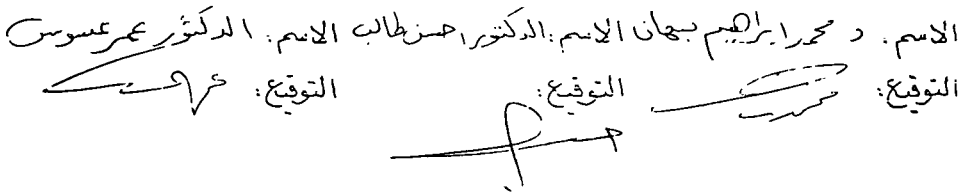 الاسم: د محمد ابراهيم بيهان الاسم: الدكتور احسن طالب الاسم: الدكتور عمر عسوس
التوقيع: التوقيع: التوقيع: